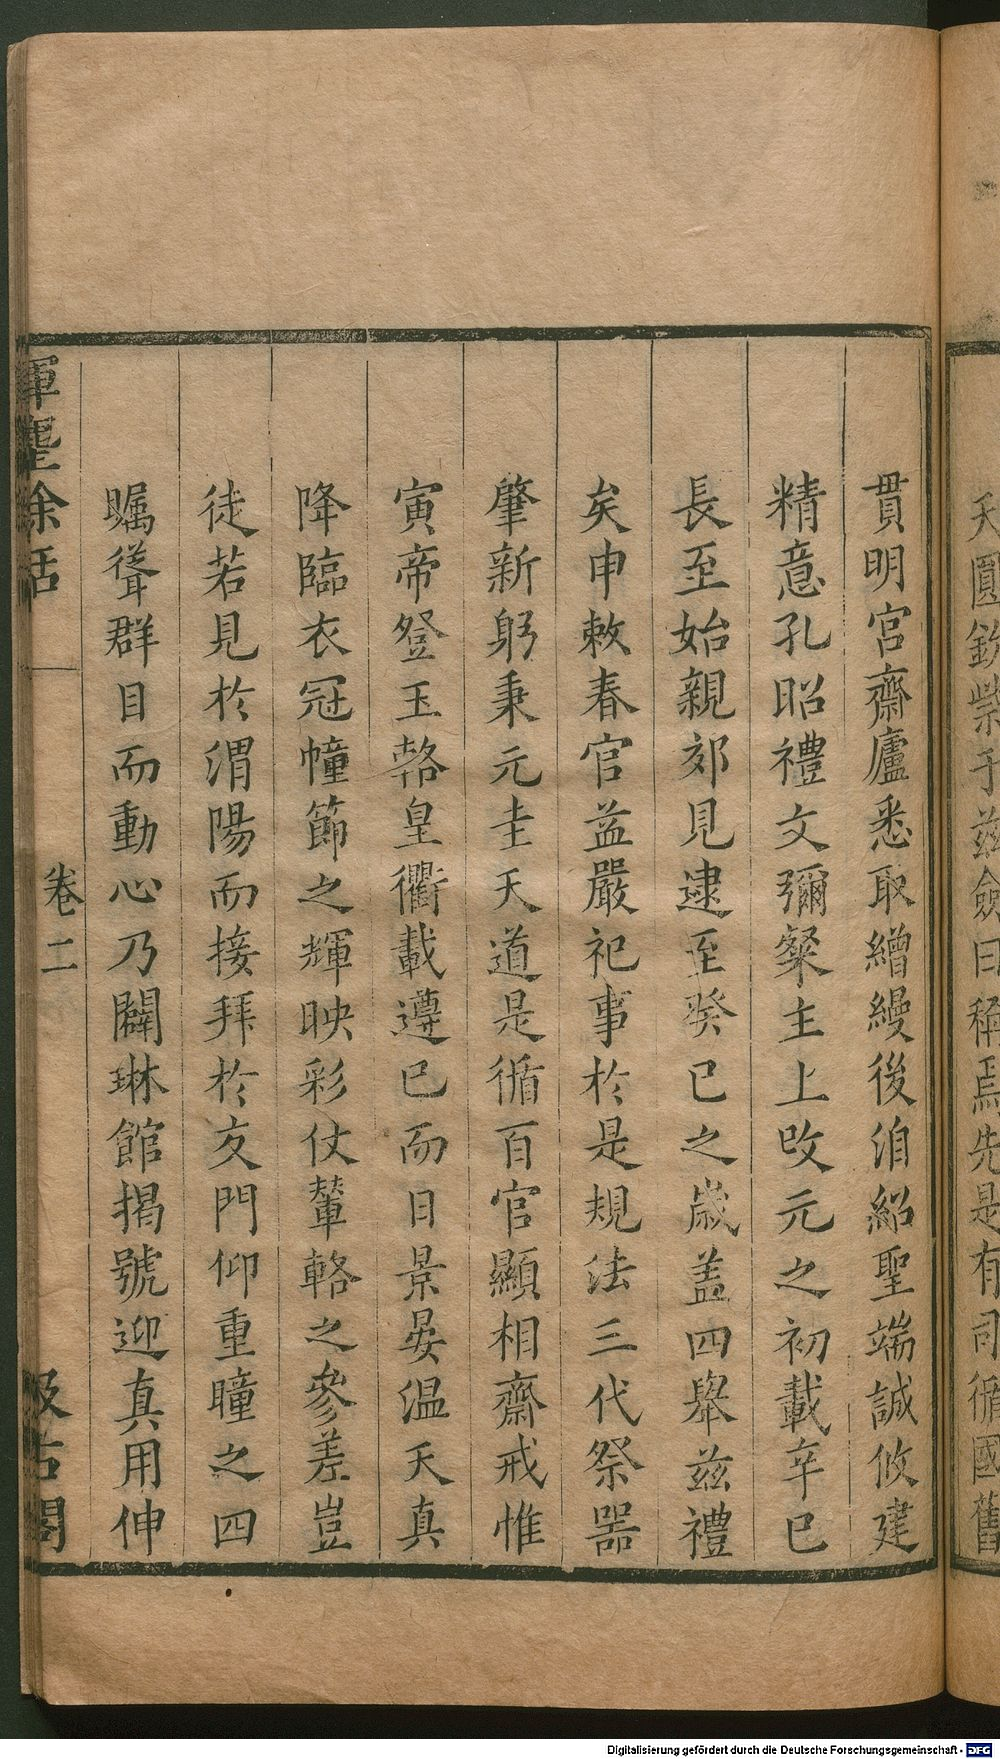 天圓欽柴于玆僉曰稱焉先是有司循國舊
貫明宮齋廬悉取繒縵後洎紹聖端誠攸建
精意孔昭禮文彌粲主上攺元之初載辛巳
長至始親郊見逮至癸巳之歲盖四舉兹禮
矣申敕春官益嚴祀事於是規法三代祭器
肇新躬秉元圭天道是循百官顯相齋戒惟
寅帝登玉輅皇衢載遵已而日景晏温天真
降臨衣冠幢節之輝映彩仗輦輅之參差豈
徒若見於渭陽而接拜於交門仰重瞳之四
矚聳群目而動心乃闢琳館揭號迎真用伸
揮麈餘話
卷二
汲古閣
Digitalisierung gefördert durch die Deutsche Forschungsgemeinschaft - DFG